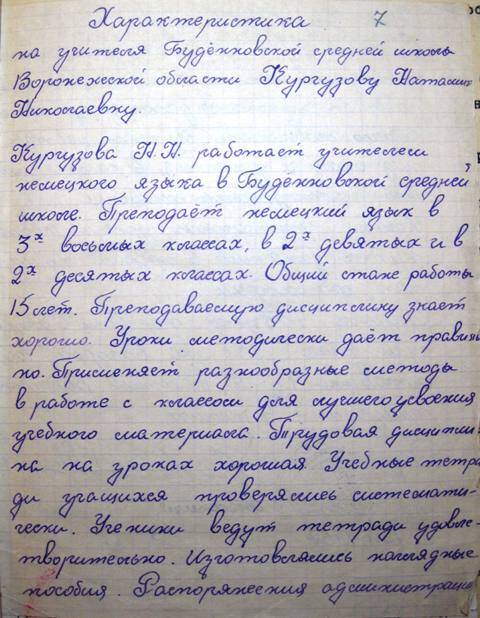 Характеристика 7
на учителя Будённовской средней школы
Воронежской области Кургузову Наталию
Николаевну.
Кургузова Н.Н. работает учителем
немецкого языка в Будённовской средней
школе. Преподаёт немецкий язык в
3х восьмых классах, в 2х девятых и в
2х десятых классах. Общий стаж работы
15 лет. Преподаваемую дисциплину знает
хорошо. Уроки методически даёт правиль
но. Применяет разнообразные методы
в работе с классом для лучшего усвоения
учебного материала. Трудовая дисципли
на на уроках хорошая. Учебные тетра
ди учащихся проверялись системати-
чески. Ученики ведут тетради удовле-
творительно. Изготовлялись наглядные
пособия. Распоряжения администрации